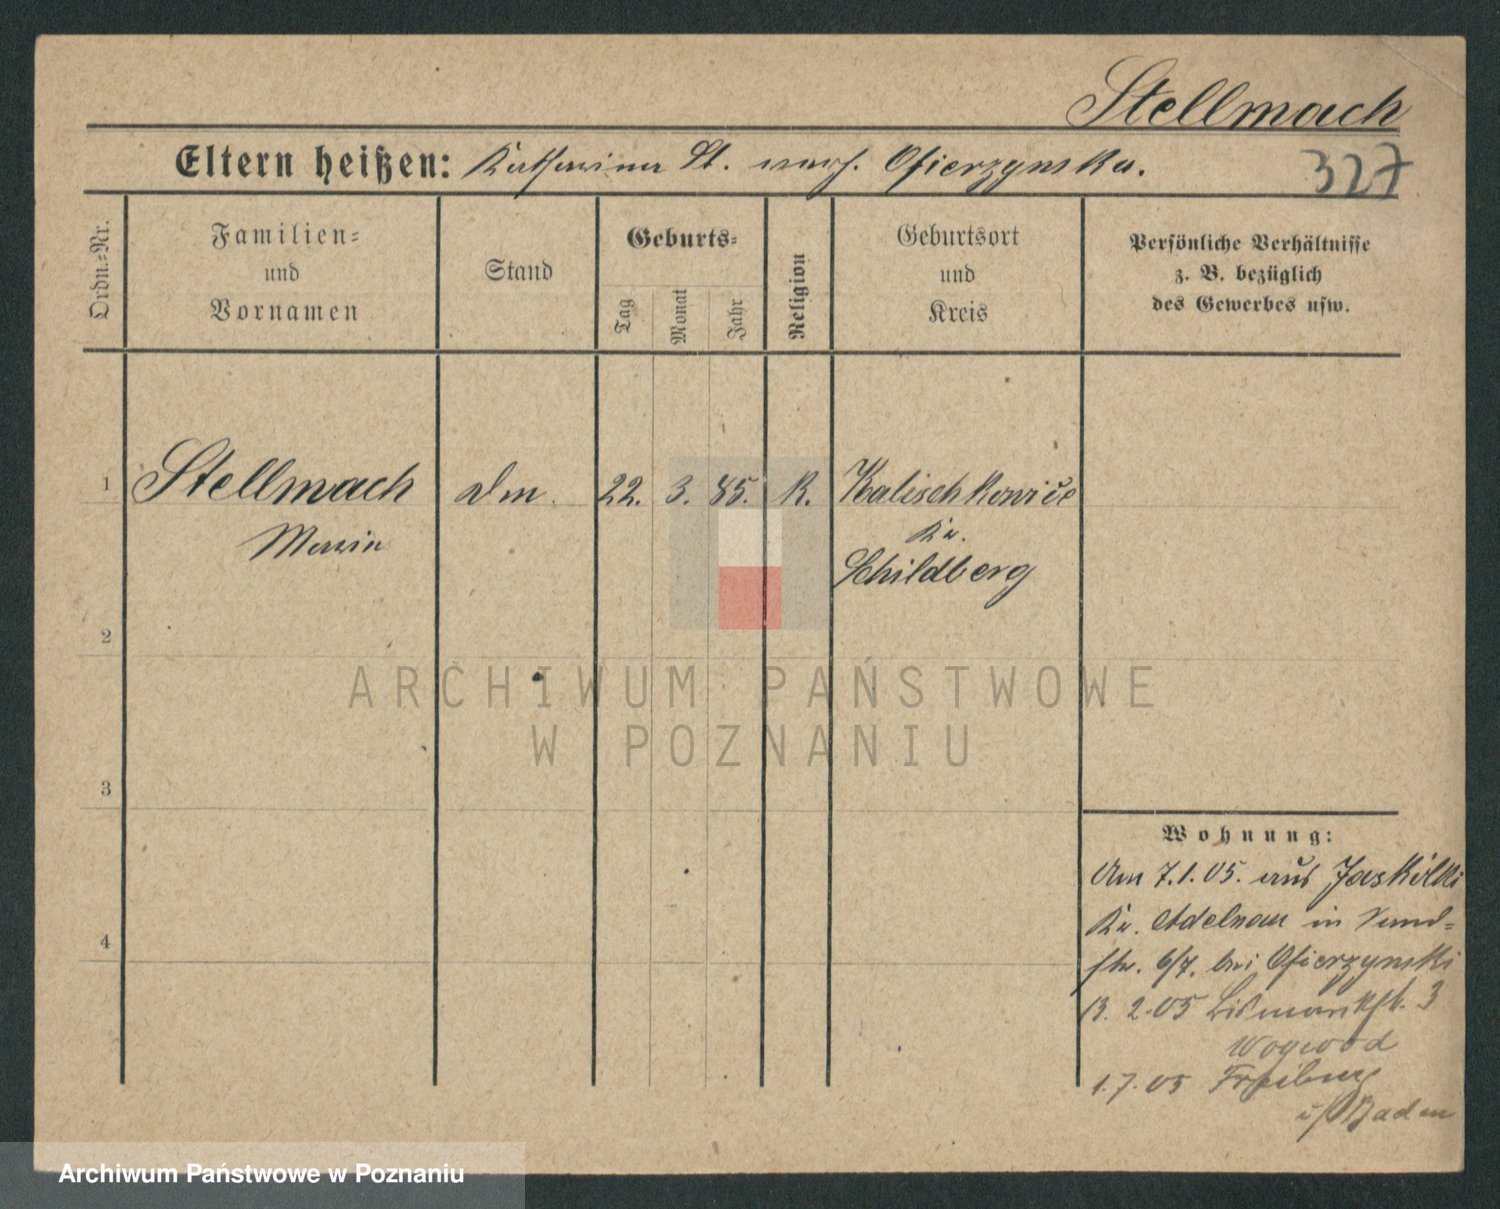 Stellmach
Eltern heißen: Katharina St. verh. Ofierzynska.
327
Ordn.=Nr.
Familien=
und
Vornamen
Stand
Geburts=
Tag
Monat
Jahr
Religion
Geburtsort
und
Kreis
Persönliche Verhältnisse
z. B. bezüglich
des Gewerbes usw.
1
Stellmach
Maria
22. 3. 85. K. Kalischkowice
Kr.
Schildberg
2
ARCHIWUM PAŃSTWOWE
W POZNANIU
3
4
Wohnung:
Am 7.1.05. aus Jaskulki
Kr. Adelnau in
6/7. bei Ofierzynski
2.05 Bismarckstr. 3
1.7.05 Freiburg
i/Baden
Archiwum Państwowe w Poznaniu